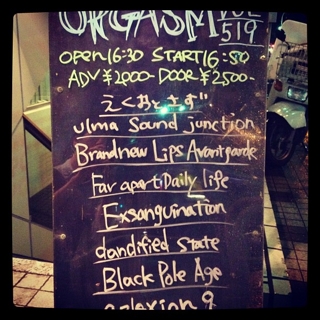 ORGASM VOL
519
OPEN 16:30 START 16:50
ADV ¥2000- DOOR ¥2500-
えくおとさず
ulma Sound junction
Brandnew Lips Avantgarde
Far apart:Daily life
Exsanguination
dandified state
Black Pole Age